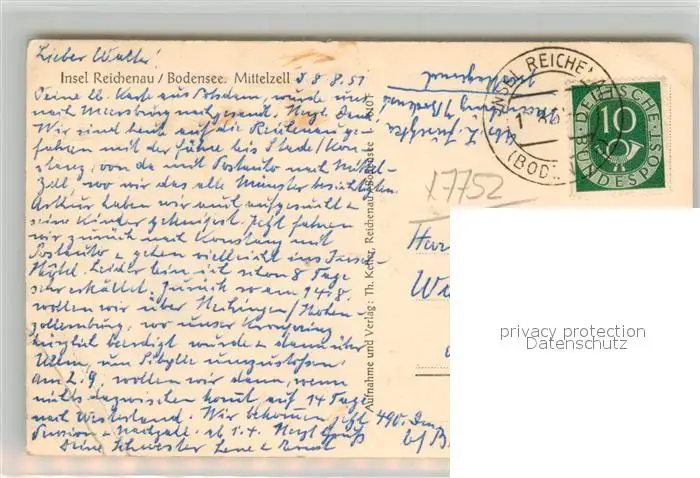 Lieber Walter!
Insel Reichenau / Bodensee. Mittelzell
8.8.51
Deine lb. Karte aus Potsdam, wurde uns
nach Meersburg nachgesandt. Herzl. Dank
Wir sind heut auf die Reichenau ge-
fahren mit der Fähre bis Stade/Kon-
stanz, von da mit Postauto nach Mittel-
zell, wo wir das alte Münster besichtigten
Arthur haben wir aufgesucht &
seine Kinder geknipst. Jetzt fahren
wir zurück nach Konstanz mit
Postauto & gehen vielleicht ins Insel-
Hotel. Leider bin ich schon 8 Tage
sehr erkältet. Zurück so am 14.8.
wollen wir über Hechingen/Hohen-
zollernburg, wo unser Kronprinz
kürzlich beerdigt wurde & dann über
Ulm, um Sibylle
am 2.9. wollen wir dann, wenn
nichts dazwischen kommt, auf 14 Tage
nach Westerland. Wir bekommen jetzt 490.
Pension & Nachzahl. ab 1.4. Herzl Grüß
Deine Schwester Lene & Ernst
Aufnahme und Verlag: Th. Keller, Reichenau / Bodensee
INSEL REICHENAU
(BOD
DEUTSCHE
10
BUNDESPOST
17752
privacy protection
Datenschutz